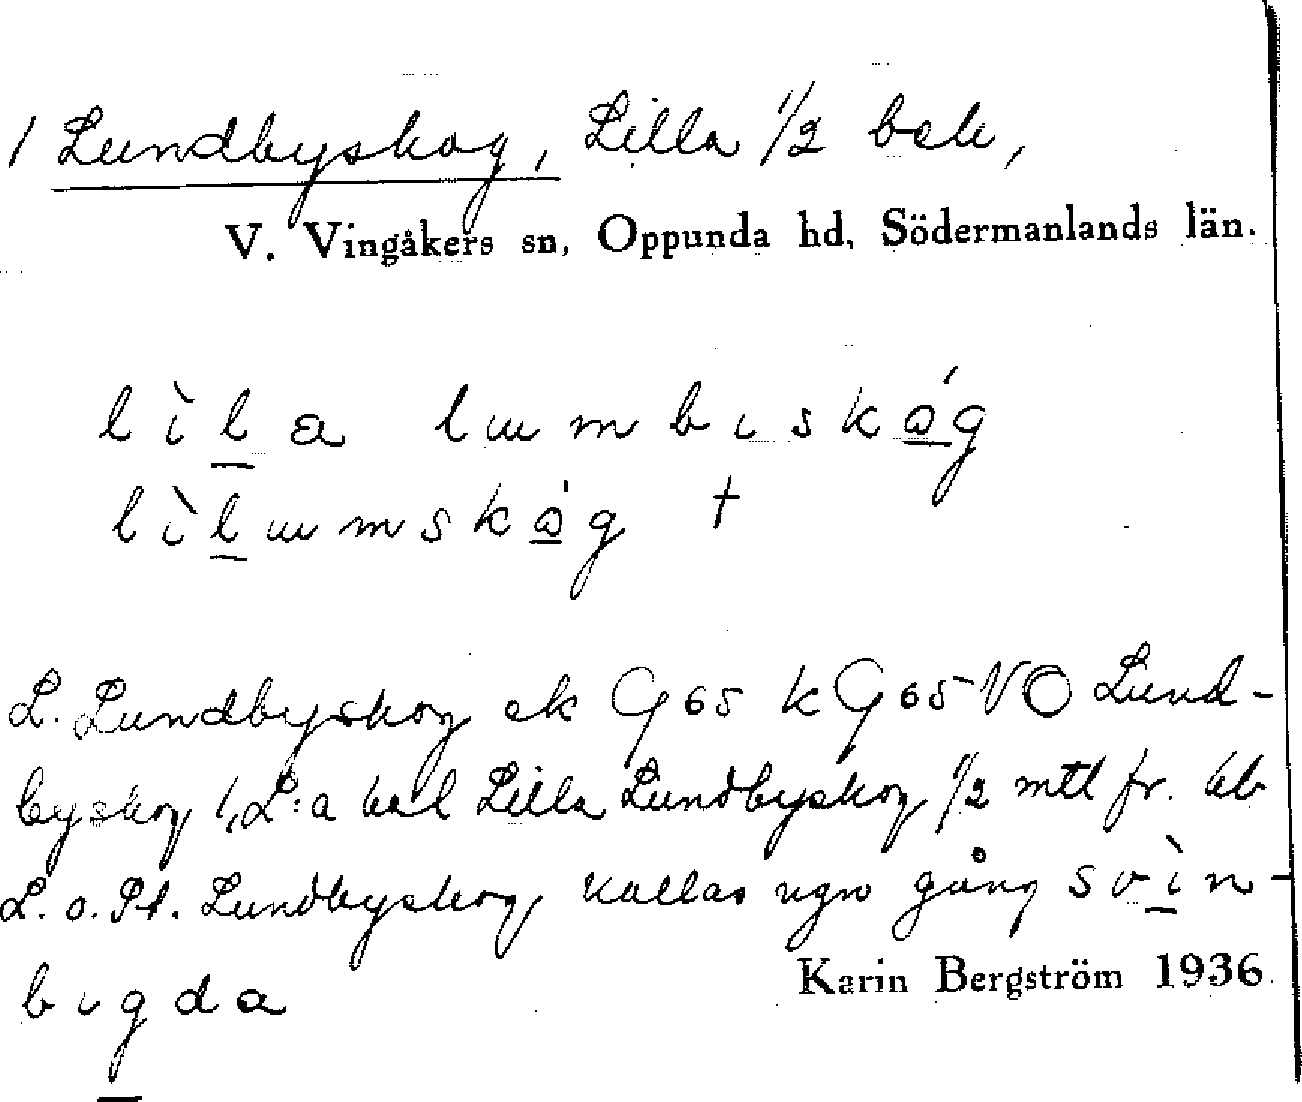 1 Lundbyskog, Lilla 1/2 bel,
V. Vingåkers sn, Oppunda hd, Södermanlands län.
lìla lumbıskóg
lìlumskóg †
L. Lundbyskog ek G65 kG65 VO Lund-
byskog 1, L:a Lilla Lundbyskog 1/2 mtl fr.
L. o. St. Lundbyskog kallas ngn gång svìn-
bıgda
Karin Bergström 1936